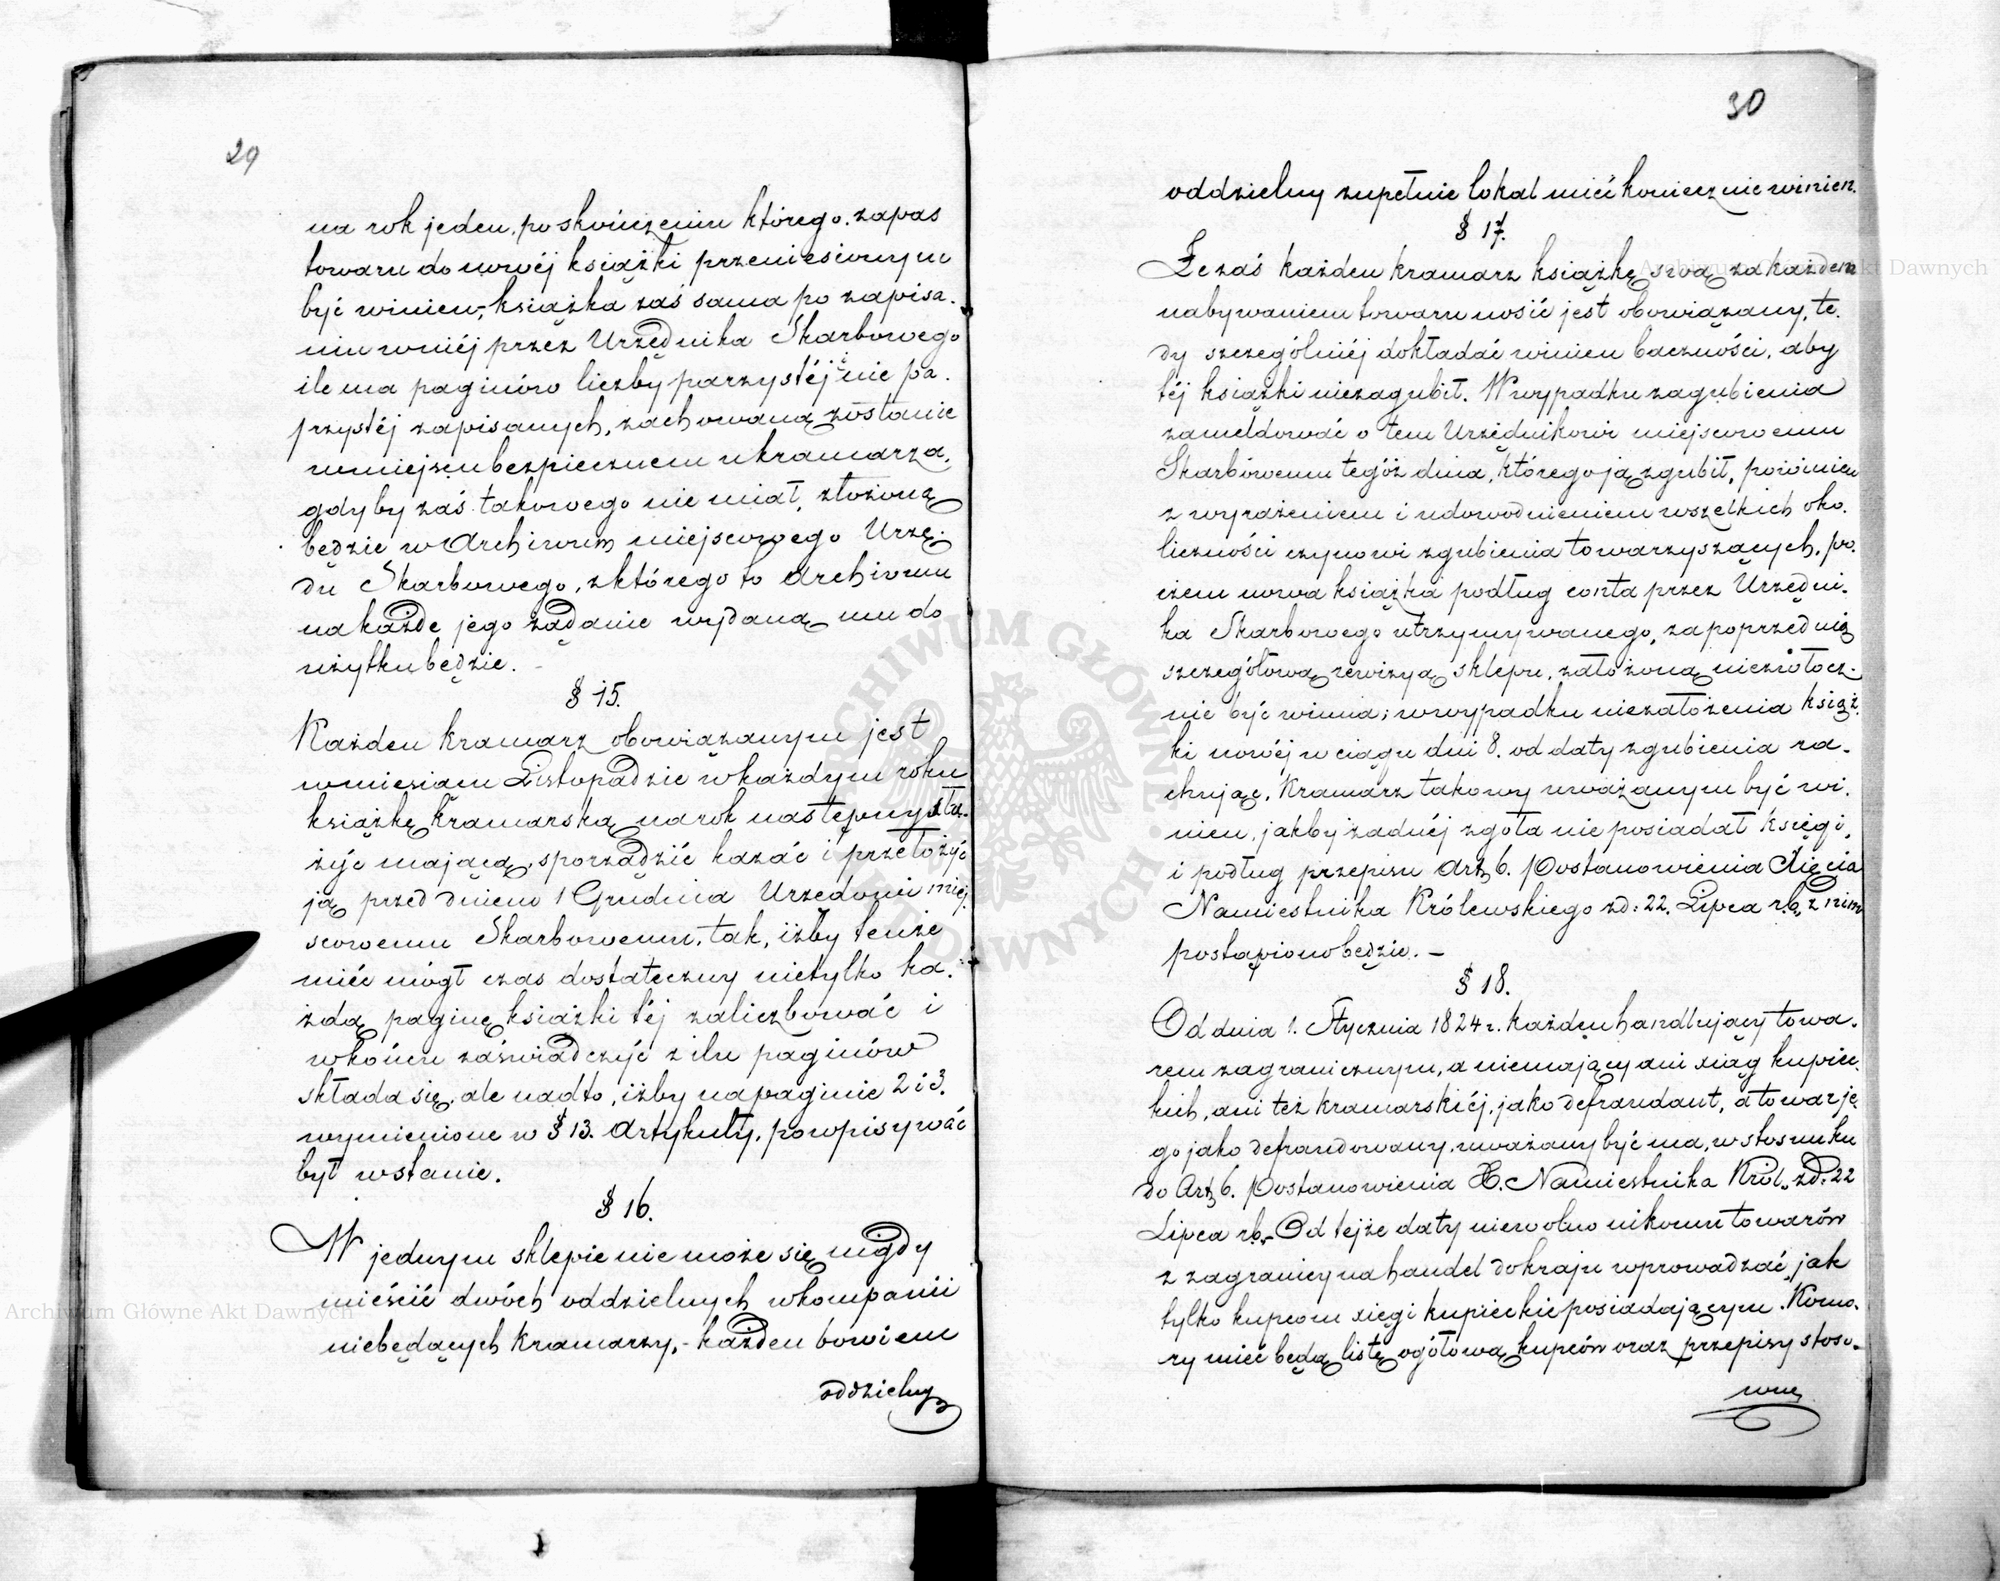 29
na rok jeden, po skończeniu którego zapas
towaru do nowéj książki przeniesionym
być winien, książka zaś sama po zapisa-
niu wniéj przez Urzędnika Skarbowego
ile ma paginów liczby parzystéj i nie pa-
rzystéj zapisanych, zachowaną zostanie
wmiejscu bezpiecznem u kramarza,
gdyby zaś takowego nie miał, złożoną
będzie w Archiwum miejscowego Urzę-
du Skarbowego, zktórego to Archiwum
na każde jego żądanie wydaną mu do
użytku będzie. -
§ 15.
Każden kramarz obowiązanym jest
wmiesiącu Listopadzie wkażdym roku
książkę kramarską na rok następny słu-
żyć mającą, sporządzić kazać i przełożyć
ją przed dniem 1 Grudnia Urzędowi miej-
scowemu Skarbowemu, tak, iżby tenże
mieć mógł czas dostateczny nietylko ka-
żdą paginę książki téj zaliczbować i
wkońcu zaświadczyć z ilu paginów
składa się, ale nadto, iżby na paginie 2 i 3.
wymienione w § 13. Artykuły, powpisywać
był wstanie.
§ 16.
W jednym sklepie nie może się nigdy
mieścić dwóch oddzielnych wkompanii
niebędących kramarzy, - każden bowiem
oddzielny
30
oddzielny zupełnie lokal mieć koniecznie winien.
§ 17.
Że zaś każden kramarz książkę swą zakażdem
nabywaniem towaru nosić jest obowiązany, te-
dy szczególniéj dokładać winien baczności, aby
téj książki niezagubił. Wwypadku zagubienia
zameldować o tem Urzędnikowi miejscowemu
Skarbowemu tegóż dnia, którego ją zgubił, powinien
z wyrażeniem i udowodnieniem wszelkich oko-
liczności czynowi zgubienia towarzyszących, po-
czem nowa książka podług conta przez Urzędni-
ka Skarbowego utrzymywanego, zapoprzednią
szczegółową rewizyą sklepu, założoną niezwłocz-
nie być winna; wwypadku niezałożenia książ-
ki nowéj w ciągu dni 8. od daty zgubienia ra-
chując, Kramarz takowy uważanym być wi-
nien, jakby żadnéj zgoła nie posiadał księgi,
i podług przepisu Art. 6. Postanowienia Xięcia
Namiestnika Królewskiego zd: 22. Lipca r.b. z nim
postąpiono będzie. -
§ 18.
Od dnia 1. Stycznia 1824 r. każden handlujący towa-
rem zagranicznym, a niemający ani xiąg kupiec-
kich, ani też kramarskiéj, jako defraudant, a towar je-
go jako defraudowany, uważany być ma, w stosunku
do Art. 6. Postanowienia X. Namiestnika Król. zd: 22
Lipca r.b. Od tejże daty niewolno nikomu towarów
z zagranicy na handel do kraju wprowadzać, jak
tylko kupcom xięgi kupieckie posiadającym. Komo-
ry mieć będą listę ogółową kupców oraz przepisy stoso-
wne
Archiwum Główne Akt Dawnych
Archiwum Główne Akt Dawnych
ARCHIWUM GŁÓWNE AKT DAWNYCH